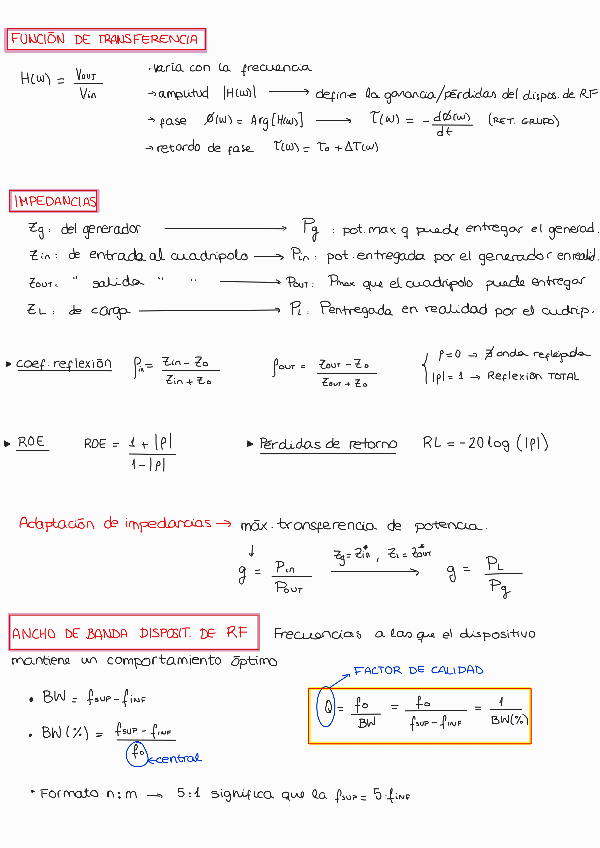 FUNCIÓN DE TRANSFERENCIA
H(ω) = VOUT / Vin
· varía con la frecuencia
→ amplitud |H(ω)| ⟶ define la ganancia/pérdidas del dispos. de RF
→ fase ϕ(ω) = Arg[H(ω)] ⟶ τ(ω) = - dϕ(ω) / dt (RET. GRUPO)
→ retardo de fase τ(ω) = τ0 + Δτ(ω)
IMPEDANCIAS
Zg: del generador ⟶ Pg : pot. max q puede entregar el generad.
Zin: de entrada al cuadripolo ⟶ Pin: pot. entregada por el generador en realid.
ZOUT: " salida " " ⟶ POUT: Pmax que el cuadripolo puede entregar
ZL: de carga ⟶ PL: Pentregada en realidad por el cudrip.
▸ coef. reflexión ρin = Zin - Z0 / Zin + Z0 ρOUT = ZOUT - Z0 / ZOUT + Z0 { ρ=0 → ∄ onda reflejada
|ρ| = 1 → Reflexión TOTAL
▸ ROE ROE = 1 + |ρ| / 1 - |ρ| ▸ Pérdidas de retorno RL = -20 log (|ρ|)
Adaptación de impedancias → máx. transferencia de potencia.
↓
g = Pin / POUT Zg = Zin*, ZL = ZOUT* ⟶ g = PL / Pg
ANCHO DE BANDA DISPOSIT. DE RF Frecuencias a las que el dispositivo
mantiene un comportamiento óptimo
FACTOR DE CALIDAD
• BW = fSUP - fINF
Q = f0 / BW = f0 / fSUP - fINF = 1 / BW(%)
• BW (%) = fSUP - fINF / f0 ← central
• Formato n:m → 5:1 significa que la fSUP = 5·fINF